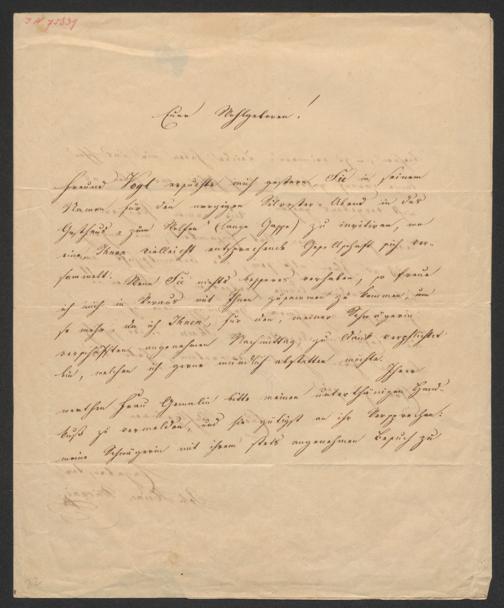 IN 75839
Euer Wohlgeboren!
Freund Vogl ersuchte mich gestern Sie in seinem
Namen für den morgigen Silvester-Abend in das
Gasthaus "zum (lange Gasse) zu invitiren, wo
eine Ihnen vielleicht entsprechende Gesellschaft sich ver-
sammelt. Wenn Sie nichts besseres vorhaben, so freue
ich mich im Voraus mit Ihnen zusammen zu kommen, um
so mehr, da ich Ihnen, für den, meiner Schwägerin
verschafften angenehmen Nachmittag, zu Dank verpflichtet
bin, welchen ich gerne mündlich abstatten möchte.
Ihrer
werthen Frau Gemalin bitte meinen unterthänigen Hand-
kuß zu vermelden, und sie gütigst an ihr Versprechen:
meine Schwägerin mit ihrem stets angenehmen Besuch zu